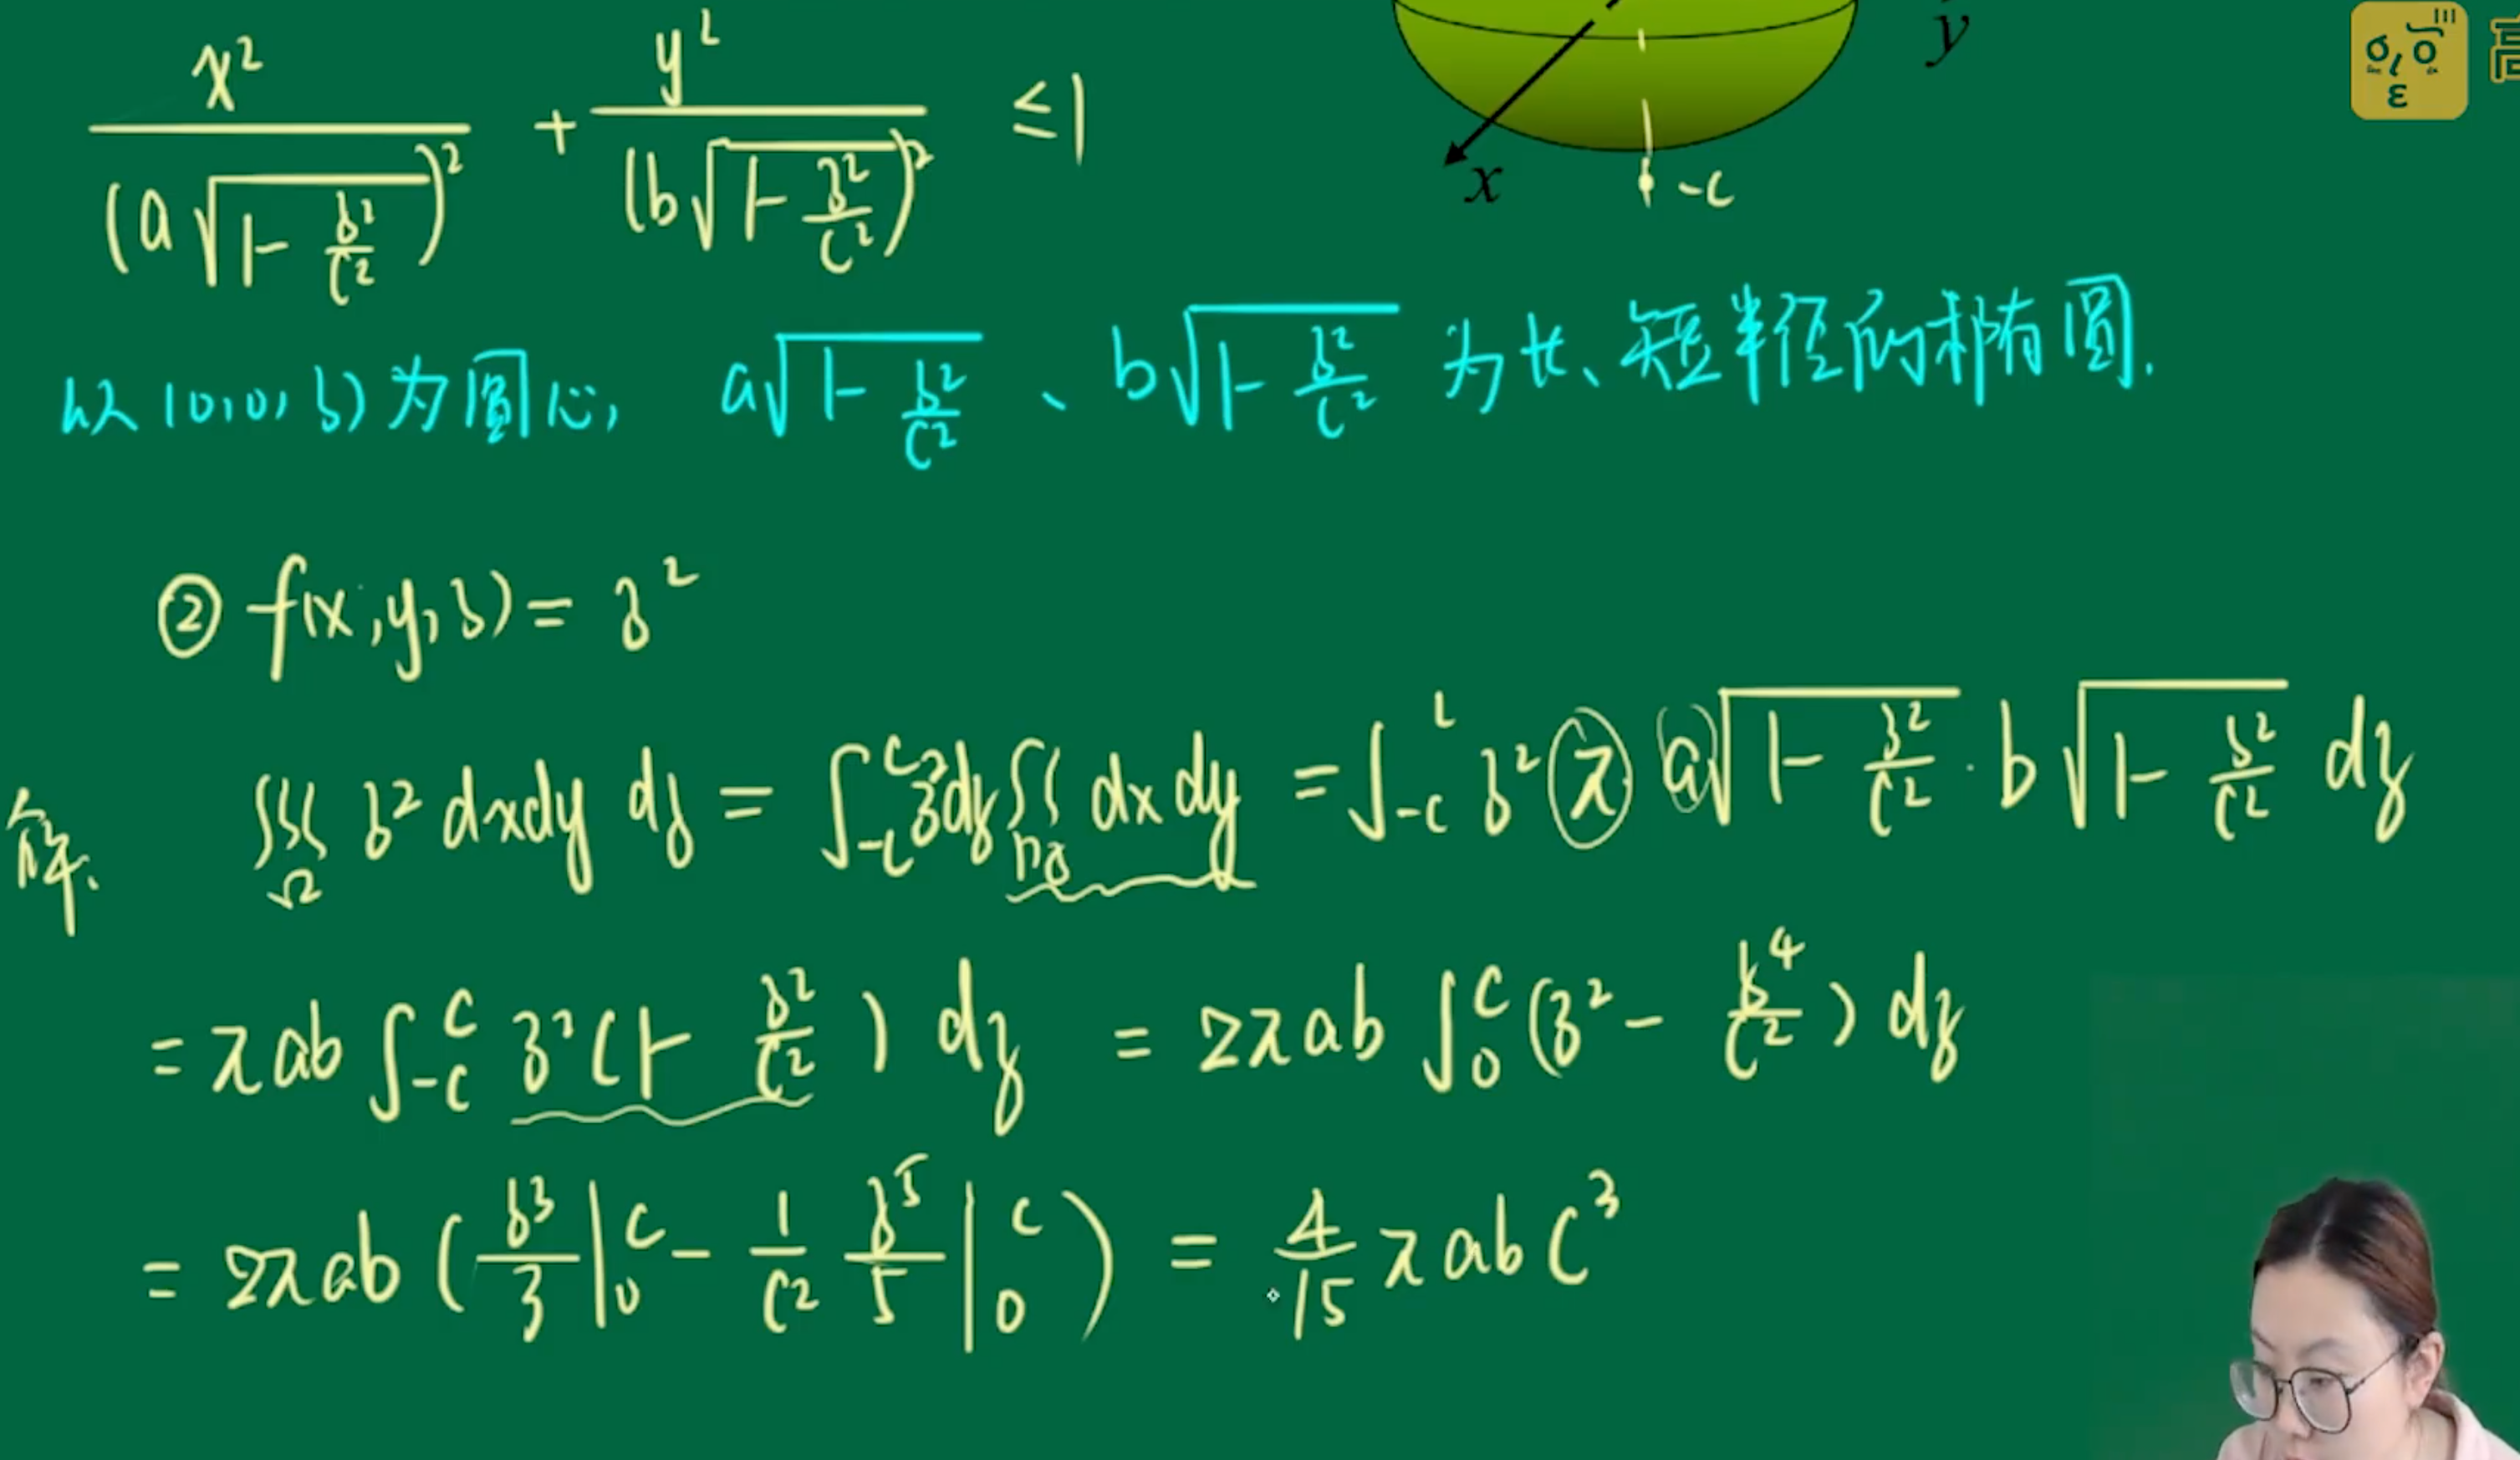 x²/(a√(1-z²/c²))² + y²/(b√(1-z²/c²))² ≤1
y
x
-c
以(0,0,z)为圆心, a√(1-z²/c²)、b√(1-z²/c²) 为长、短半径的椭圆.
② f(x,y,z)= z²
解. ∭_Ω z² dxdy dz = ∫_{-c}^{c} z²dz ∬_{Dz} dx dy = ∫_{-c}^{c} z² π a√(1-z²/c²)·b√(1-z²/c²) dz
= πab ∫_{-c}^{c} z²(1-z²/c²) dz = 2πab ∫_0^c (z²-z⁴/c²) dz
= 2πab (z³/3|_0^c - 1/c² z⁵/5|_0^c) = 4/15 πabc³